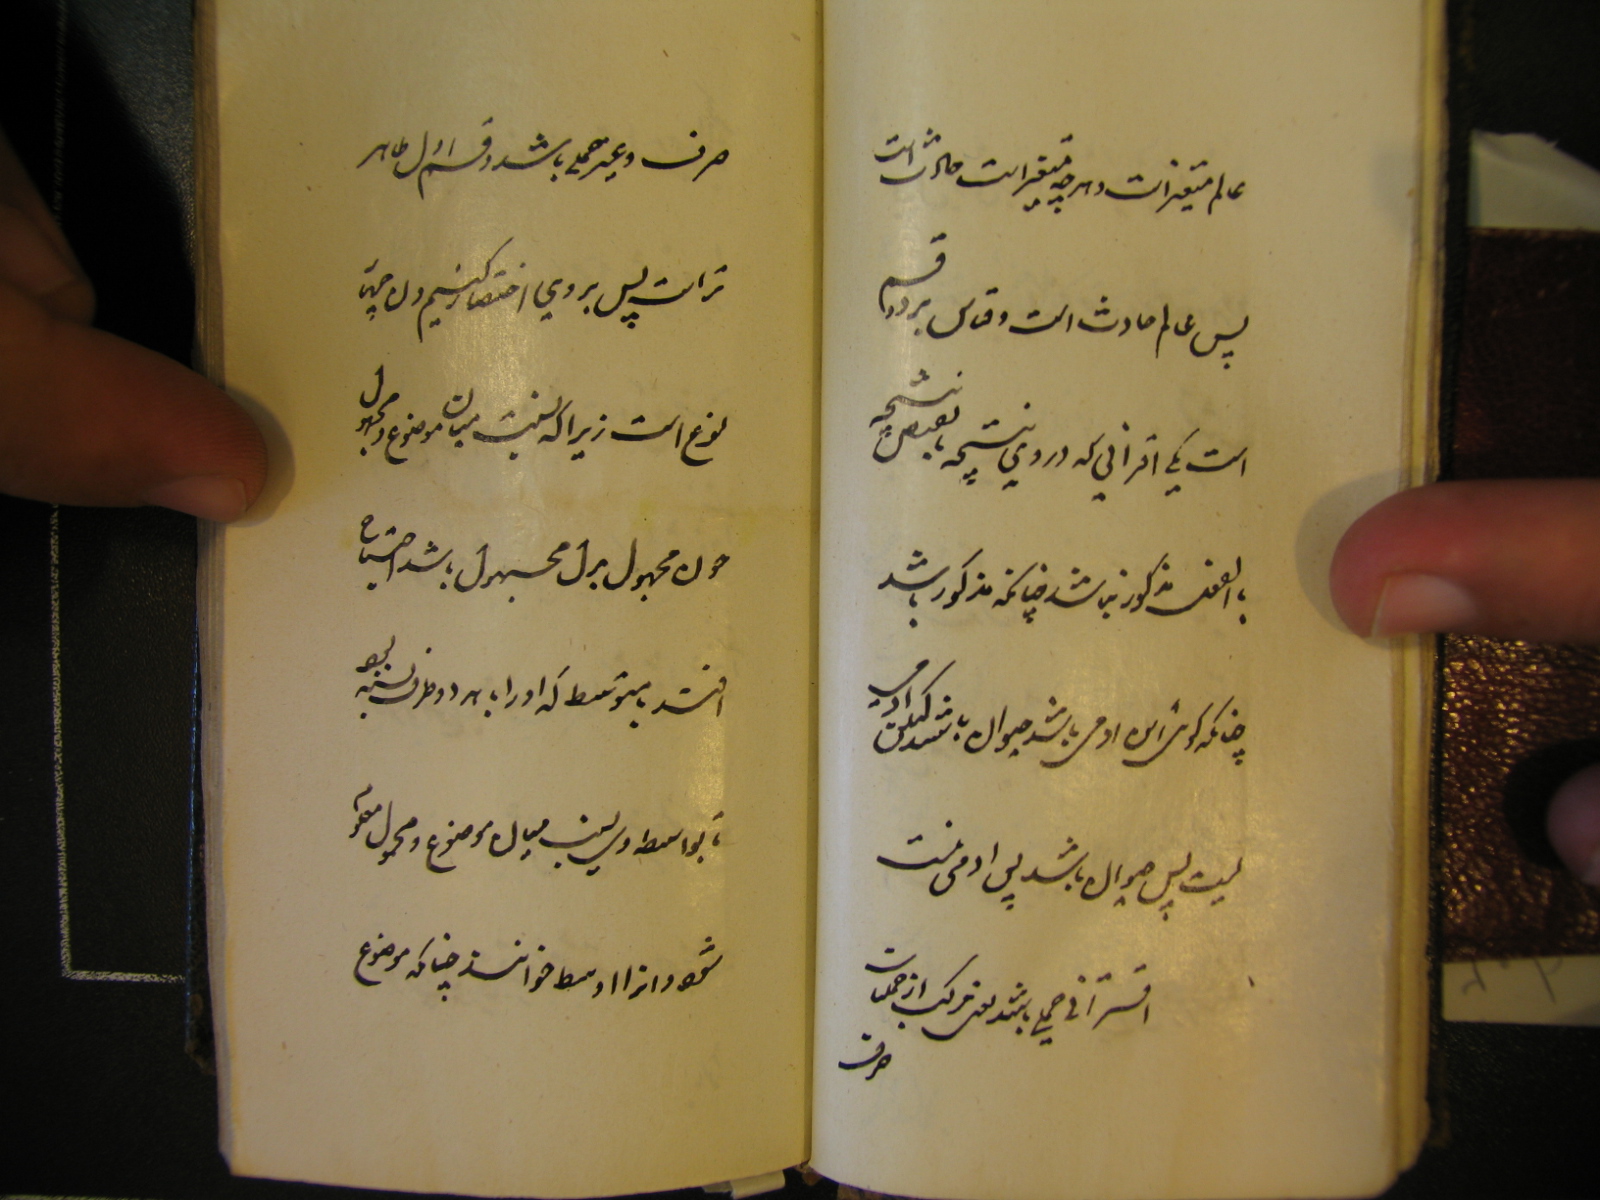 عالم متغیر است و هر چه متغیر است حادث است
پس عالم حادث است و قیاس بر دو قسم
است یکی اقترانی که در وی نتیجه یا نقیض نتیجه
بالفعل مذکور نباشد چنانکه مذکور باشد
چنانکه گوئی این ادمی باشد حیوان باشد لیکن ادمی
نیست پس حیوان باشد پس ادمی نیست
اقترانی حملی باشد یعنی مرکب از حملیات
صرف
صرف و غیر حملی باشد و قسم اول ظاهر
تر است پس بر وی اختصار کنیم و ان چهار
نوع است زیرا که نسبت میان موضوع و محمول
چون مجهول بود مجهول باشد احتیاج
افتد بمتوسط که او را بهر دو طرف نسبة بود
تا بواسطه وی نسبت میان موضوع و محمول معلوم
شود و انرا اوسط خوانند چنانکه موضوع